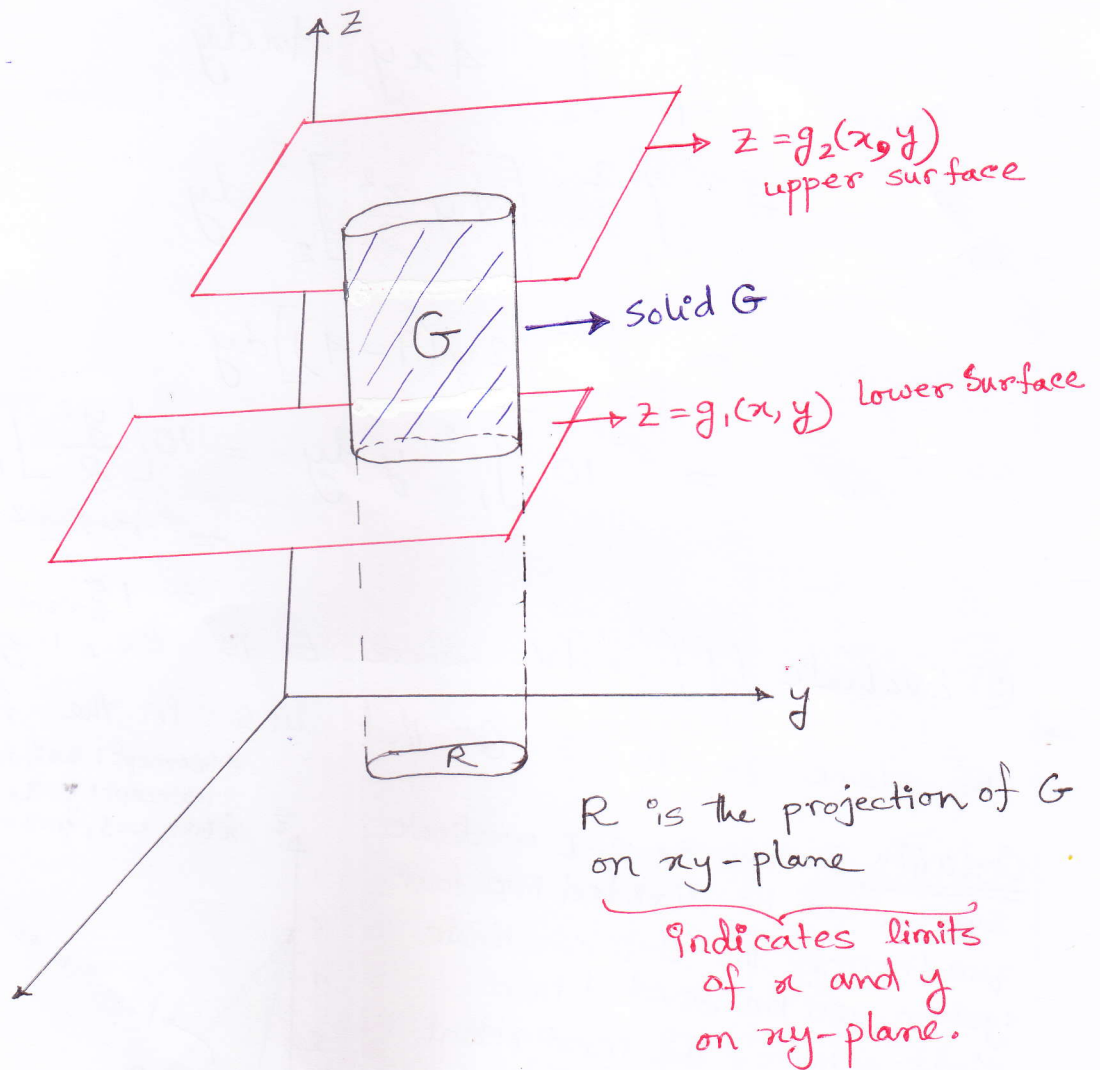 z
z = g₂(x, y)
upper surface
G
Solid G
z = g₁(x, y) Lower Surface
y
R
R is the projection of G
on xy-plane
indicates limits
of x and y
on xy-plane.